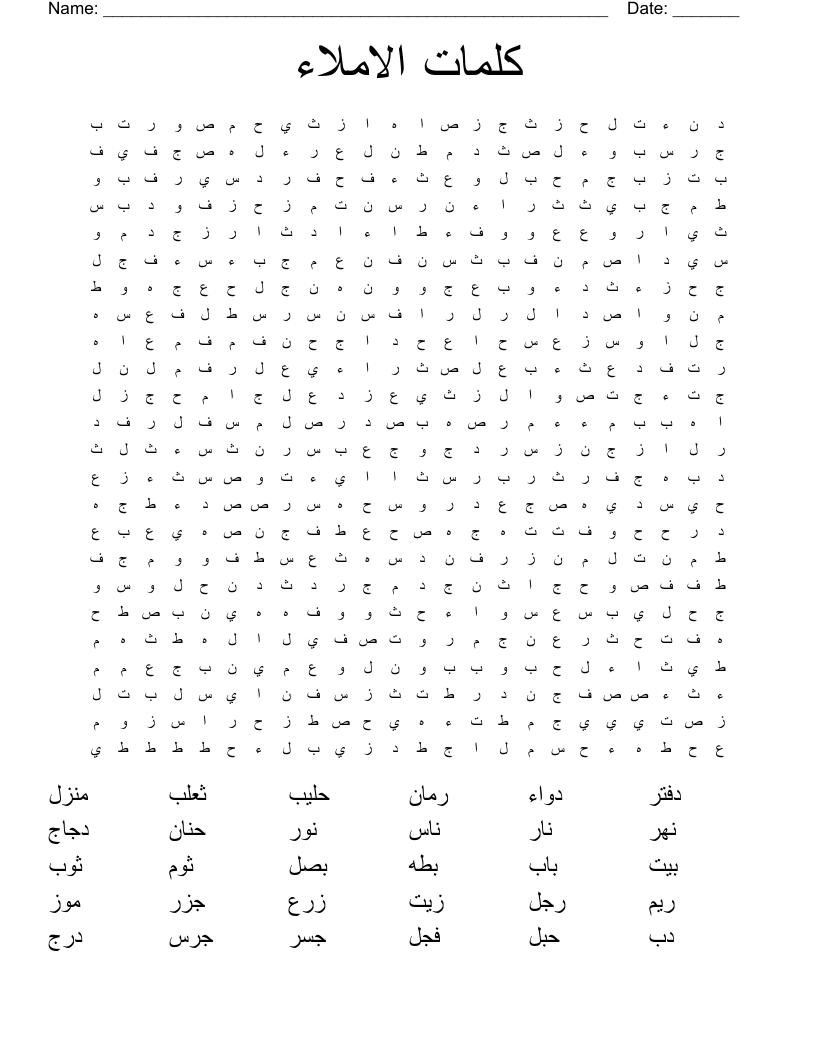 Name: ____________________________________________________ Date: _______
كلمات الاملاء
د ن ء ت ل ح ز ث ج ز ص ا ه ا ز ث ي ح م ص و ر ت ب
ج ر س ب و ء ل ص ث د م ط ن ل ع ر ء ل ه ص ج ف ي ف
ب ت ز ب ج م ح ب ل و ع ث ء ف ح ف ر د س ي ر ف ب و
ط م ج ب ي ث ث ر ا ء ن ر س ن ت م ز ح ز ف و د ب س
ث ي ا ر و ع ع و و ف ء ط ا ء ا د ث ا ر ز ج د م و
س ي د ا ص م ن ف ب ث س ن ف ن ع م ج ب ء س ء ف ج ل
ج ح ز ء ث د ء و ب ع ج و و ن ه ن ج ل ح ع ج ه و ط
م ن و ا ص د ا ل ر ل ر ا ف س ن س ر س ط ل ف ع س ه
ج ل ا و س ز ع س ح ا ع ح د ا ج ح ن ف م ف م ع ا ه
ر ت ف د ع ث ء ب ع ل ص ث ر ا ء ي ع ل ر ف م ل ن ل
ج ت ء ج ت ص و ا ل ز ث ي ع ز د ع ل ج ا م ح ج ز ل
ا ه ب ب م ء ء م ر ص ه ب ص د ر ص ل م س ف ل ر ف د
ر ل ا ز ج ن ز س ر د ج و ج ع ب س ر ن ث س ء ث ل ث
د ب ه ج ف ر ث ر ب ر س ث ا ا ي ء ت و ص س ث ء ز ع
ح ي س د ي ه ص ج ع د ر و س ح ه س ر ص ص د ء ط ج ه
د ر ح ح و ف ت ت ه ج ه ص ح ع ط ف ج ن ص ه ي ع ب ع
ط م ن ت ل م ن ز ر ف ن د س ه ث ع س ط ف و و م ج ف
ط ف ف ص و ح ج ا ث ن ج د م ج ر د ث د ن ح ل و س و
ج ح ل ي ب س ع س و ا ء ح ث و و ف ه ه ي ن ب ص ط ح
ه ف ت ح ث ر ع ن ج م ر و ت ص ف ي ل ا ل ه ط ث ه م
ط ي ث ا ء ل ح ب و ب ب و ن ل و ع م ي ن ب ج ع م م
ء ث ء ص ص ف ج ن د ر ط ت ث ز س ف ن ا ي س ل ب ت ل
ز ص ت ي ي ي ج م ط ت ء ه ي ح ص ط ز ح ر ا س ز و م
ع ح ط ه ء ح س م ل ا ج ط د ز ي ب ل ء ح ط ط ط ط ي
دفتر دواء رمان حليب ثعلب منزل
نهر نار ناس نور حنان دجاج
بيت باب بطه بصل ثوم ثوب
ريم رجل زيت زرع جزر موز
دب حبل فجل جسر جرس درج